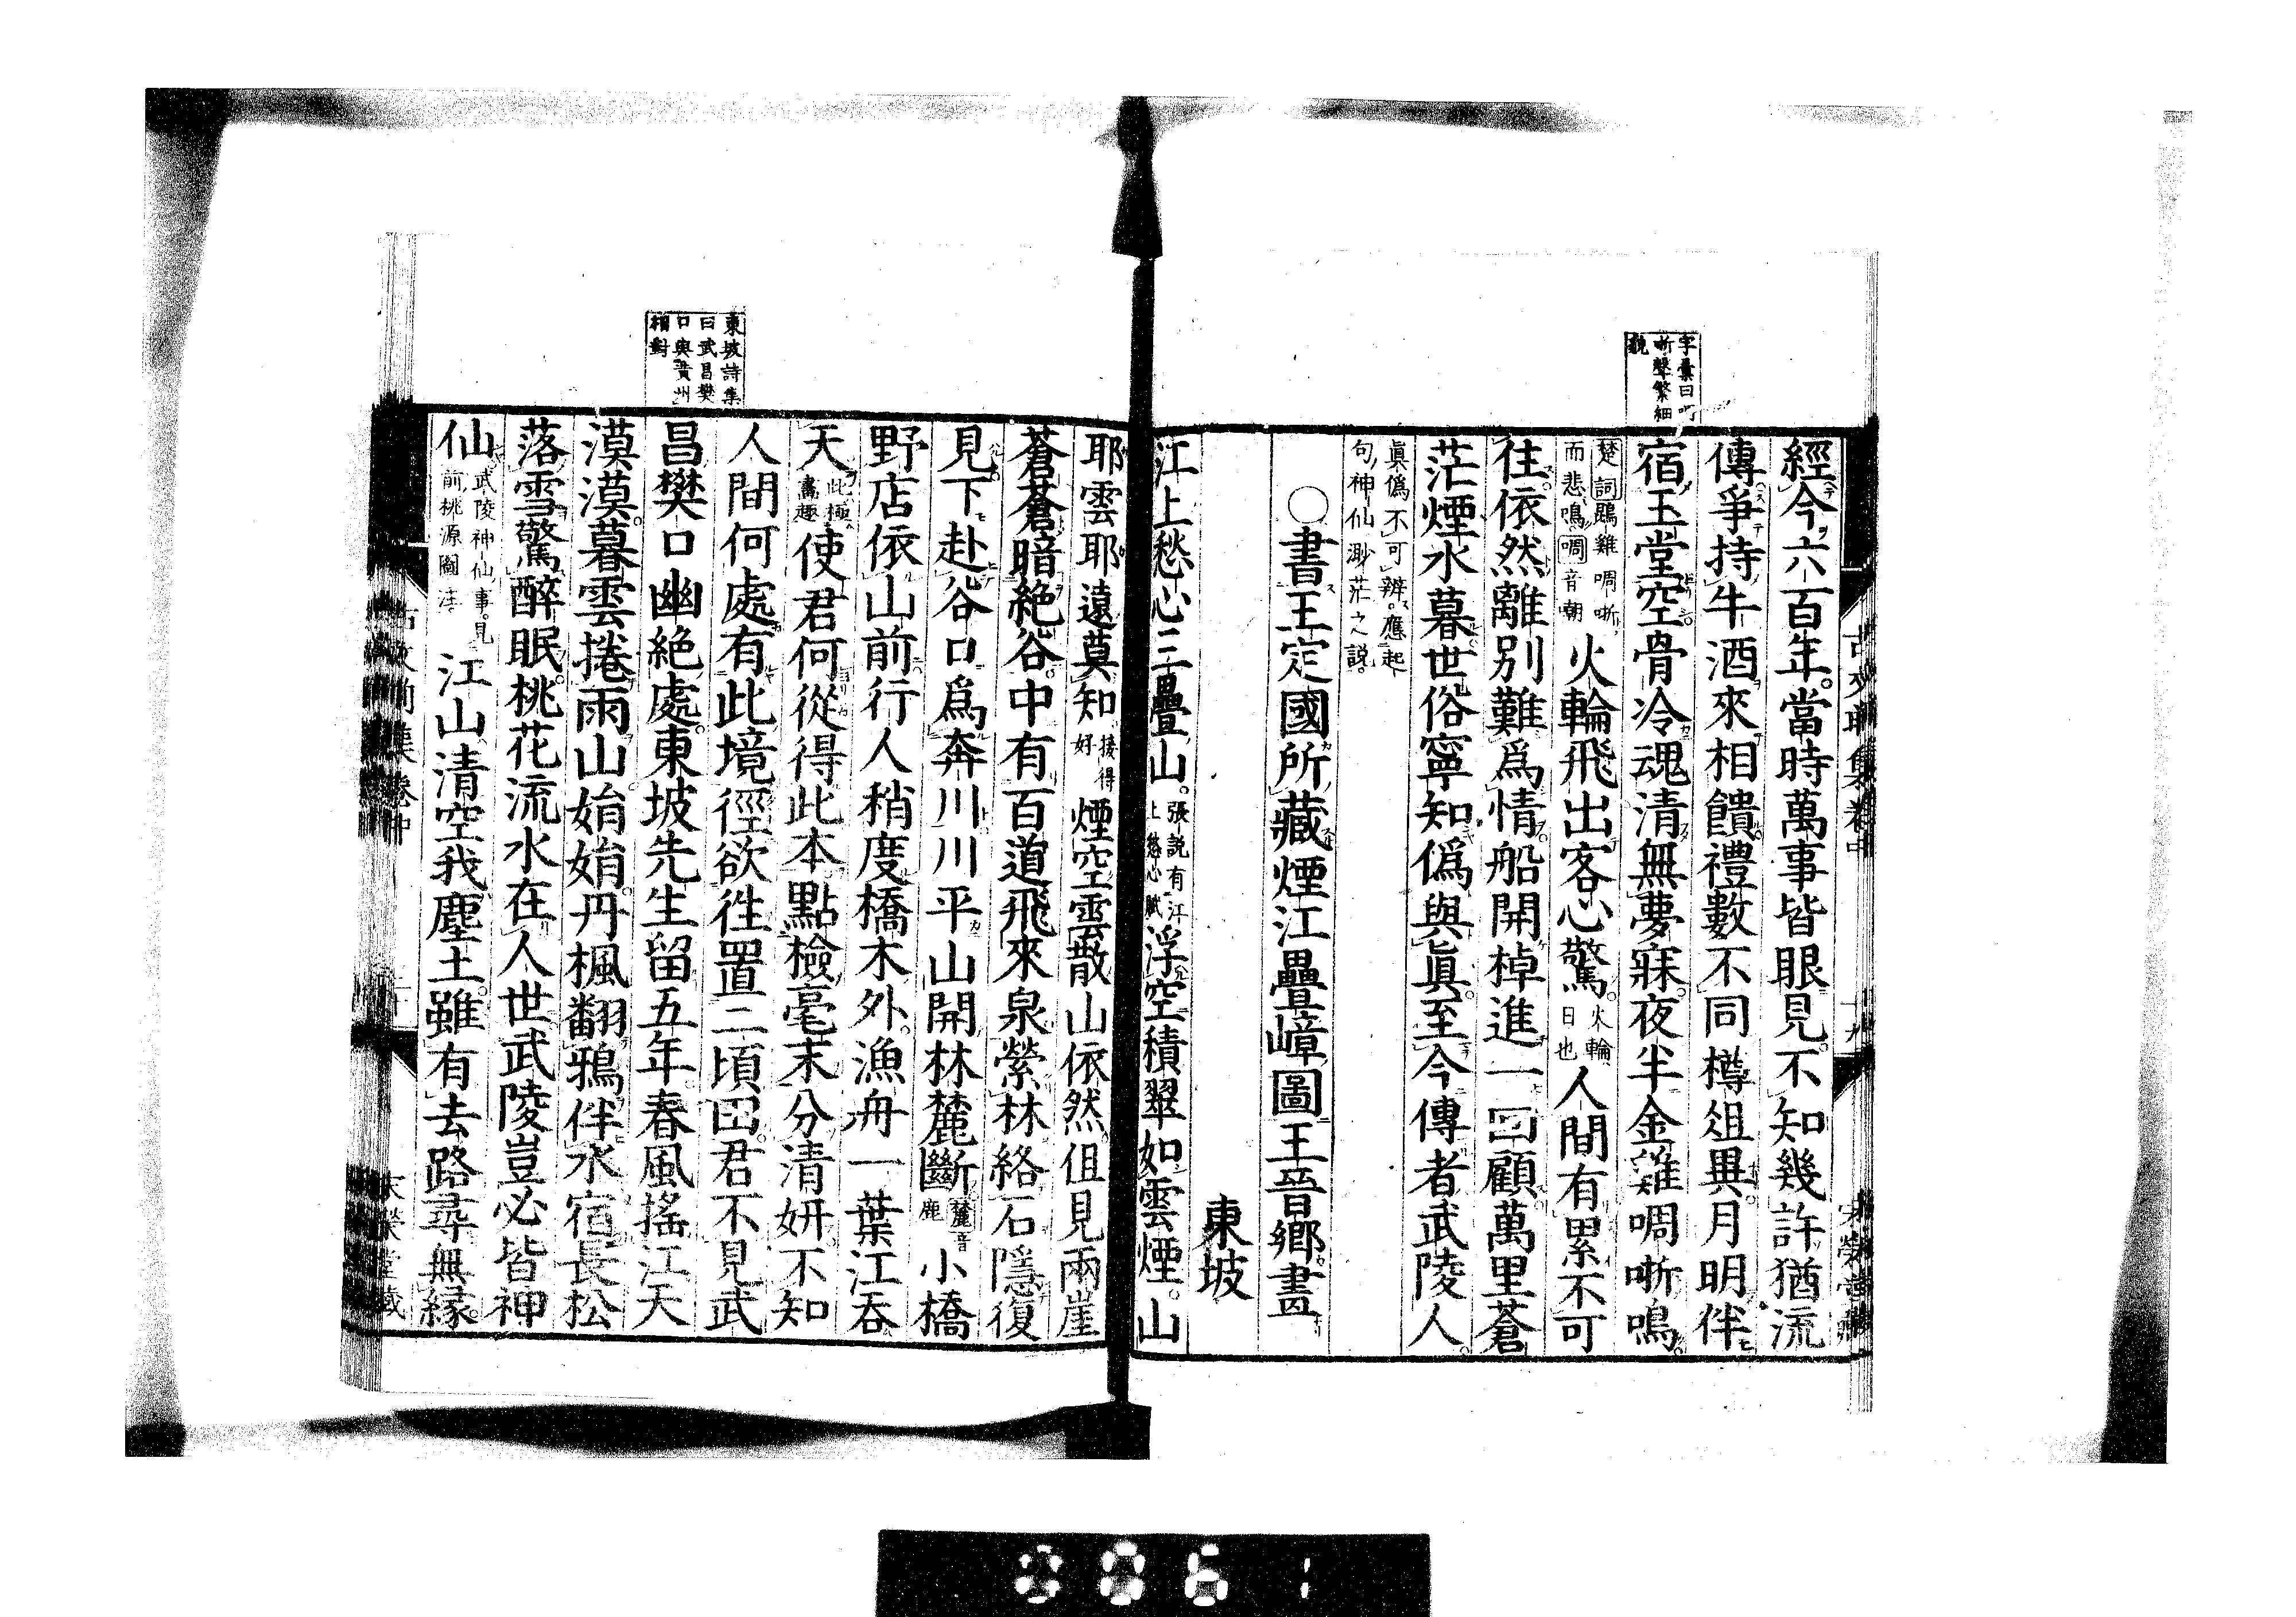 字彙曰
哳聲繁細
貌
經今六百年當時萬事皆眼見不知幾許猶流
傳爭持牛酒來相饋禮數不同樽俎異月明伴
宿玉堂空骨冷魂清無夢寐夜半金雞啁哳鳴
楚詞鵾雞啁哳
而悲鳴啁音嘲
火輪飛出客心驚
火輪
日也
人間有累不可
往依然離別難爲情船開棹進一囘顧萬里蒼
茫煙水暮世俗寧知僞與眞至今傳者武陵人
眞僞不可辨應起
句神仙渺茫之說
○書王定國所藏煙江疊嶂圖王晉鄉畫
東坡
江上愁心三疊山
張説有江
上愁心賦
浮空積翠如雲煙山
耶雲耶遠莫知
接得
好
煙空雲散山依然但見兩崖
蒼蒼暗絶谷中有百道飛來泉縈林絡石隱復
見下赴谷口爲奔川川平山開林麓斷
麓音
鹿
小橋
野店依山前行人稍度橋木外漁舟一葉江吞
天
此極
畵趣
使君何從得此本點檢毫末分清妍不知
人間何處有此境徑欲徃置二頃囘君不見武
昌樊口幽絶處東坡先生留五年春風搖江天
漠漠暮雲捲雨山娟娟丹楓翻鴉伴水宿長松
落雪驚醉眠桃花流水在人世武陵豈必皆神
仙
武陵神仙事見
前桃源圖注
江山清空我塵土雖有去路尋無緣
東坡詩集
曰武昌樊
口與黃州
相對